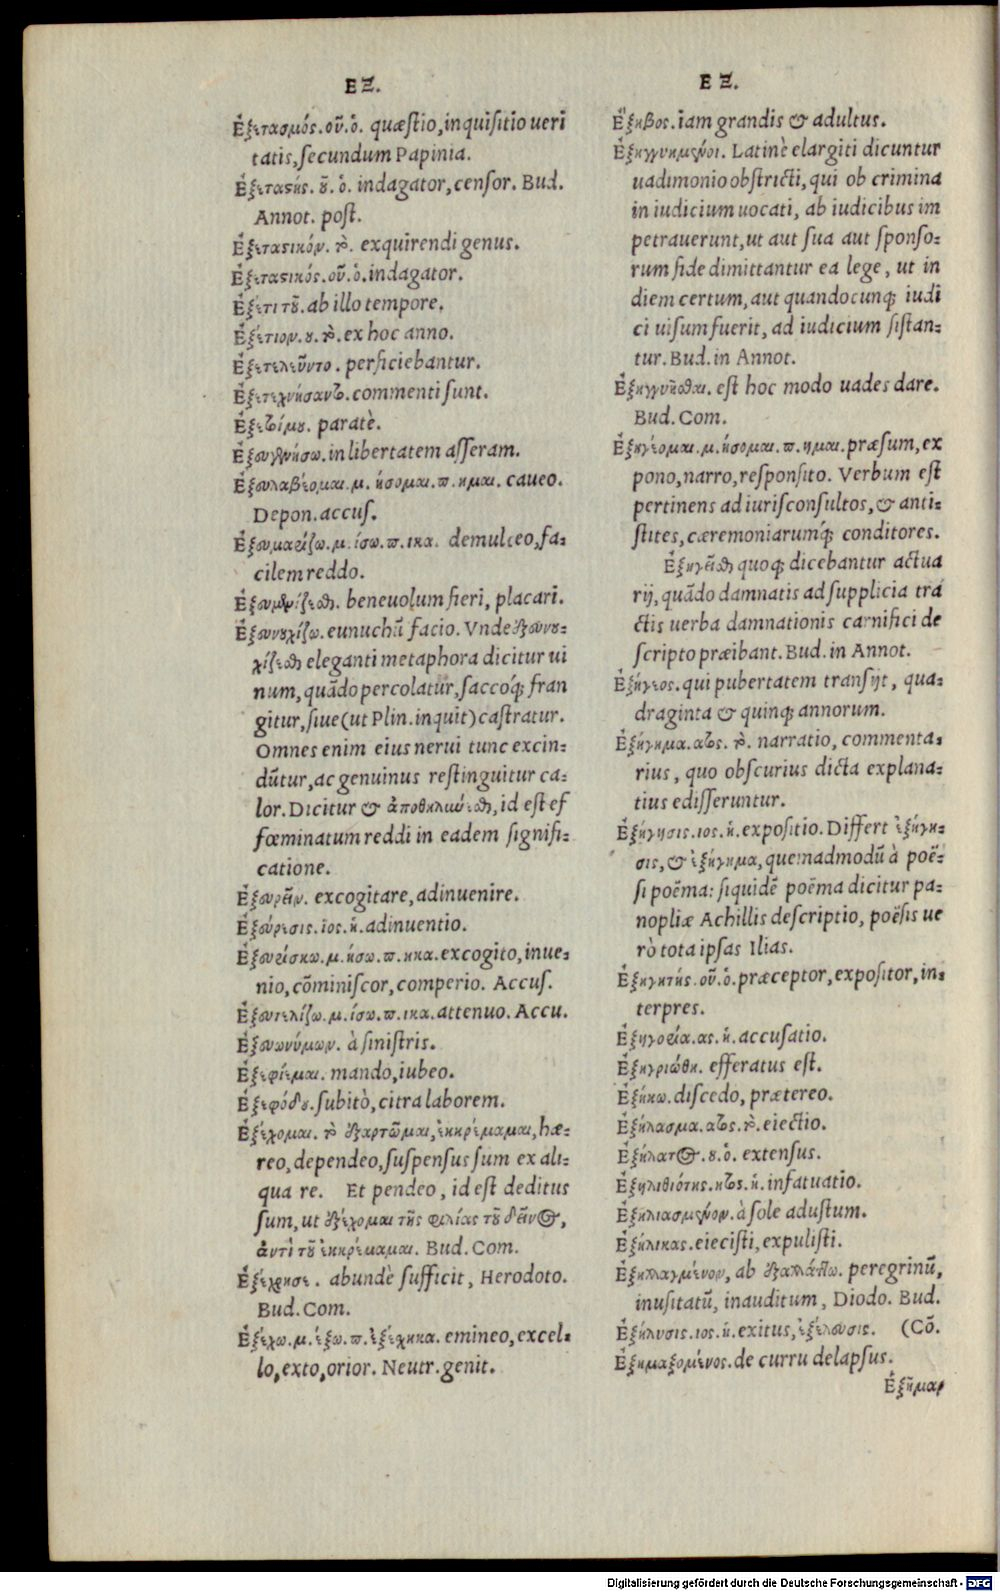 ΕΞ.
Ἐξετασμός.οῦ.ὁ. quæſtio,inquiſitio ueri
tatis,ſecundum Papinia.
Ἐξεταςής.ȣ͂.ὁ. indagator,cenſor. Bud.
Annot. poſt.
Ἐξεταςικόν.τὸ. exquirendi genus.
Ἐξεταςικός.οῦ.ὁ.indagator.
Ἐξέτι τȣ͂.ab illo tempore.
Ἐξέτιον.ȣ.τὸ.ex hoc anno.
Ἐξετελεῦντο. perficiebantur.
Ἐξετεχνήσαντο.commenti ſunt.
Ἐξετοίμȣ. paratè.
Ἐξευγενήσω.in libertatem aſſeram.
Ἐξευλαβέομαι.μ.ήσομαι.π.ημαι. caueo.
Depon.accuſ.
Ἐξευμαρίζω.μ.ίσω.π.ικα. demulceo,fa-
cilem reddo.
Ἐξευμενίζεσθαι. beneuolum fieri, placari.
Ἐξευνȣχίζω.eunuchũ facio. Vnde ἐξευνȣ-
χίζεσθαι eleganti metaphora dicitur ui
num,quãdo percolatur,ſaccoq́; fran
gitur,ſiue(ut Plin.inquit)caſtratur.
Omnes enim eius nerui tunc excin-
dũtur,ac genuinus reſtinguitur ca-
lor.Dicitur & ἀποθηλυύεσθαι,id eſt ef
fœminatum reddi in eadem ſignifi-
catione.
Ἐξευρεῖν. excogitare,adinuenire.
Ἐξεύρεσις.ιος.ἡ.adinuentio.
Ἐξευρίσκω.μ.ήσω.π.ηκα.excogito,inue-
nio,cõminiſcor,comperio. Accuſ.
Ἐξευτελίζω.μ.ίσω.π.ικα.attenuo.Accu.
Ἐξευωνύμων. à ſiniſtris.
Ἐξεφίεμαι. mando,iubeo.
Ἐξεφόδȣ.ſubitò,citra laborem.
Ἐξέχομαι. τὸ ἐξαρτῶμαι,ἐκκρέμαμαι,hæ-
reo,dependeo,ſuſpenſus ſum ex ali-
qua re. Et pendeo, id eſt deditus
ſum,ut ἐξέχομαι τῆς φιλίας τȣ͂ δεῖνος,
ἀντὶ τȣ͂ ἐκκρέμαμαι. Bud.Com.
Ἐξέχρησε. abundè ſufficit, Herodoto.
Bud.Com.
Ἐξέχω.μ.έξω.π.ἐξέχηκα. emineo,excel-
lo,exto,orior. Neutr.genit.
ΕΞ.
Ἔξηβος.iam grandis & adultus.
Ἐξηγγυημένοι. Latinè elargiti dicuntur
uadimonio obſtricti,qui ob crimina
in iudicium uocati, ab iudicibus im
petrauerunt,ut aut ſua aut ſponſo-
rum fide dimittantur ea lege, ut in
diem certum,aut quandocunq; iudi
ci uiſum fuerit, ad iudicium ſiſtan-
tur.Bud.in Annot.
Ἐξηγγυῆσθαι. eſt hoc modo uades dare.
Bud.Com.
Ἐξηγέομαι.μ.ήσομαι.π.ημαι.præſum,ex
pono,narro,reſponſito. Verbum eſt
pertinens ad iuriſconſultos,& anti-
ſtites, cæremoniarumq́; conditores.
Ἐξηγεῖσθαι quoq; dicebantur actua
rij,quãdo damnatis ad ſupplicia tra
ctis uerba damnationis carnifici de
ſcripto præibant.Bud.in Annot.
Ἐξήγεος.qui pubertatem tranſijt, qua-
draginta & quinq; annorum.
Ἐξήγημα.ατος.τὸ. narratio, commenta-
rius, quo obſcurius dicta explana-
tius ediſſeruntur.
Ἐξήγησις.ιος.ἡ.expoſitio.Differt ἐξήγη-
σις,& ἐξήγημα,quemadmodũ à poë-
ſi poëma: ſiquidẽ poëma dicitur pa-
nopliæ Achillis deſcriptio, poëſis ue
rò tota ipſas Ilias.
Ἐξηγητής.οῦ.ὁ.præceptor,expoſitor,in-
terpres.
Ἐξηγορία.ας.ἡ.accuſatio.
Ἐξηγριώθη. efferatus eſt.
Ἐξήκω.diſcedo, prætereo.
Ἐξήλασμα.ατος.τὸ.eiectio.
Ἐξήλατος.ȣ.ὁ. extenſus.
Ἐξηλιθιότης.ητος.ἡ.infatuatio.
Ἐξηλιασμένον.à ſole aduſtum.
Ἐξήλικας.eieciſti,expuliſti.
Ἐξηλλαγμένον, ab ἐξαλλάττω. peregrinũ,
inuſitatũ, inauditum, Diodo. Bud.
Ἐξήλυσις.ιος.ἡ.exitus,ἐξέλευσις. (Cõ.
Ἐξημαξομένος.de curru delapſus.
Ἐξημαρ
Digitalisierung gefördert durch die Deutsche Forschungsgemeinschaft - DFG